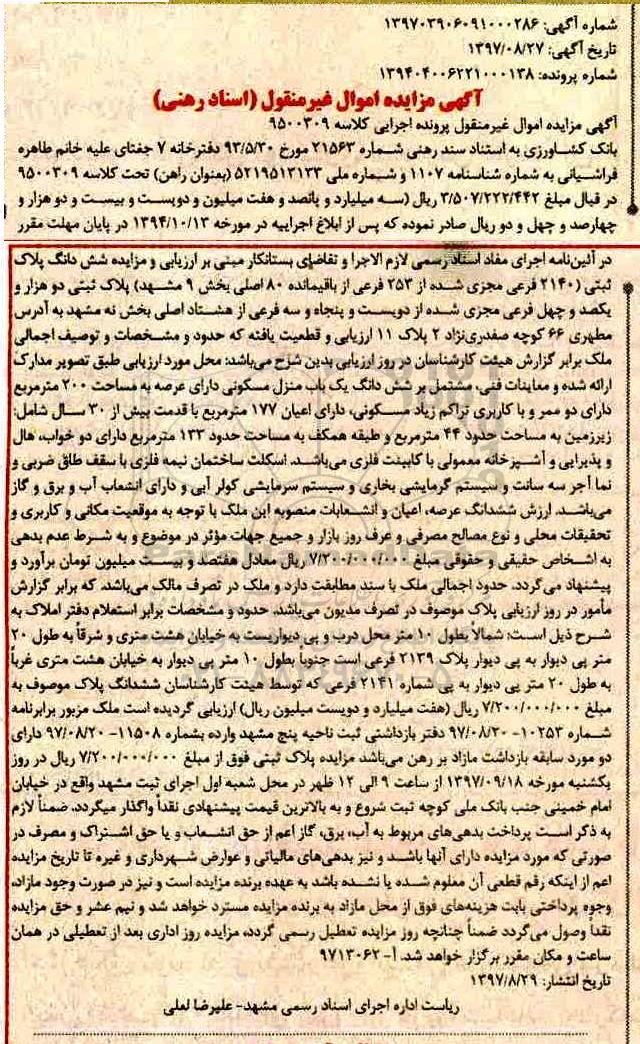 شماره آگهی: ۱۳۹۷۰۳۹۰۶۰۹۱۰۰۰۲۸۶
تاریخ آگهی: ۱۳۹۷/۰۸/۲۷
شماره پرونده: ۱۳۹۴۰۴۰۰۶۲۲۱۰۰۰۱۳۸
آگهی مزایده اموال غیرمنقول (اسناد رهنی)
آگهی مزایده اموال غیرمنقول پرونده اجرایی کلاسه ۹۵۰۰۳۰۹
بانک کشاورزی به استناد سند رهنی شماره ۲۱۵۶۳ مورخ ۹۳/۵/۳۰ دفترخانه ۷ جغتای علیه خانم طاهره
فراشیانی به شماره شناسنامه ۱۱۰۷ و شماره ملی ۵۲۱۹۵۱۳۱۳۳ (بعنوان راهن) تحت کلاسه ۹۵۰۰۳۰۹
در قبال مبلغ ۳/۵۰۷/۲۲۲/۴۴۲ ریال (سه میلیارد و پانصد و هفت میلیون و دویست و بیست و دو هزار و
چهارصد و چهل و دو ریال صادر نموده که پس از ابلاغ اجراییه در مورخه ۱۳۹۴/۱۰/۱۳ در پایان مهلت مقرر
در آئین‌نامه اجرای مفاد اسناد رسمی لازم الاجرا و تقاضای بستانکار مبنی بر ارزیابی و مزایده شش دانگ پلاک
ثبتی (۲۱۴۰ فرعی مجزی شده از ۲۵۳ فرعی از باقیمانده ۸۰ اصلی بخش ۹ مشهد) پلاک ثبتی دو هزار و
یکصد و چهل فرعی مجزی شده از دویست و پنجاه و سه فرعی از هشتاد اصلی بخش نه مشهد به آدرس
مطهری ۶۶ کوچه صفدری‌نژاد ۲ پلاک ۱۱ ارزیابی و قطعیت یافته که حدود و مشخصات و توصیف اجمالی
ملک برابر گزارش هیئت کارشناسان در روز ارزیابی بدین شرح می‌باشد: محل مورد ارزیابی طبق تصویر مدارک
ارائه شده و معاینات فنی، مشتمل بر شش دانگ یک باب منزل مسکونی دارای عرصه به مساحت ۲۰۰ مترمربع
دارای دو ممر و با کاربری تراکم زیاد مسکونی، دارای اعیان ۱۷۷ مترمربع با قدمت بیش از ۳۰ سال شامل:
زیرزمین به مساحت حدود ۴۴ مترمربع و طبقه همکف به مساحت حدود ۱۳۳ مترمربع دارای دو خواب، هال
و پذیرایی و آشپزخانه معمولی با کابینت فلزی می‌باشد. اسکلت ساختمان نیمه فلزی با سقف طاق ضربی و
نما آجر سه سانت و سیستم گرمایشی بخاری و سیستم سرمایشی کولر آبی و دارای انشعاب آب و برق و گاز
می‌باشد. ارزش ششدانگ عرصه، اعیان و انشعابات منصوبه این ملک با توجه به موقعیت مکانی و کاربری و
تحقیقات محلی و نوع مصالح مصرفی و عرف روز بازار و جمیع جهات مؤثر در موضوع و به شرط عدم بدهی
به اشخاص حقیقی و حقوقی مبلغ ۷/۲۰۰/۰۰۰/۰۰۰ ریال معادل هفتصد و بیست میلیون تومان برآورد و
پیشنهاد می‌گردد. حدود اجمالی ملک با سند مطابقت دارد و ملک در تصرف مالک می‌باشد. که برابر گزارش
مأمور در روز ارزیابی پلاک موصوف در تصرف مدیون می‌باشد. حدود و مشخصات برابر استعلام دفتر املاک به
شرح ذیل است: شمالاً بطول ۱۰ متر محل درب و پی دیواریست به خیابان هشت متری و شرقاً به طول ۲۰
متر پی دیوار به پی دیوار پلاک ۲۱۳۹ فرعی است جنوباً بطول ۱۰ متر پی دیوار به خیابان هشت متری غرباً
به طول ۲۰ متر پی دیوار به پی شماره ۲۱۴۱ فرعی که توسط هیئت کارشناسان ششدانگ پلاک موصوف به
مبلغ ۷/۲۰۰/۰۰۰/۰۰۰ ریال (هفت میلیارد و دویست میلیون ریال) ارزیابی گردیده است ملک مزبور برابرنامه
شماره ۱۰۲۵۳- ۹۷/۰۸/۲۰ دفتر بازداشتی ثبت ناحیه پنج مشهد وارده بشماره ۱۱۵۰۸- ۹۷/۰۸/۲۰ دارای
دو مورد سابقه بازداشت مازاد بر رهن می‌باشد مزایده پلاک ثبتی فوق از مبلغ ۷/۲۰۰/۰۰۰/۰۰۰ ریال در روز
یکشنبه مورخه ۱۳۹۷/۰۹/۱۸ از ساعت ۹ الی ۱۲ ظهر در محل شعبه اول اجرای ثبت مشهد واقع در خیابان
امام خمینی جنب بانک ملی کوچه ثبت شروع و به بالاترین قیمت پیشنهادی نقداً واگذار میگردد. ضمناً لازم
به ذکر است پرداخت بدهی‌های مربوط به آب، برق، گاز اعم از حق انشعاب و یا حق اشتراک و مصرف در
صورتی که مورد مزایده دارای آنها باشد و نیز بدهی‌های مالیاتی و عوارض شهرداری و غیره تا تاریخ مزایده
اعم از اینکه رقم قطعی آن معلوم شده یا نشده باشد به عهده برنده مزایده است و نیز در صورت وجود مازاد،
وجوه پرداختی بابت هزینه‌های فوق از محل مازاد به برنده مزایده مسترد خواهد شد و نیم عشر و حق مزایده
نقداً وصول می‌گردد ضمناً چنانچه روز مزایده تعطیل رسمی گردد، مزایده روز اداری بعد از تعطیلی در همان
ساعت و مکان مقرر برگزار خواهد شد. آ- ۹۷۱۳۰۶۲
تاریخ انتشار: ۱۳۹۷/۸/۲۹
ریاست اداره اجرای اسناد رسمی مشهد- علیرضا لعلی